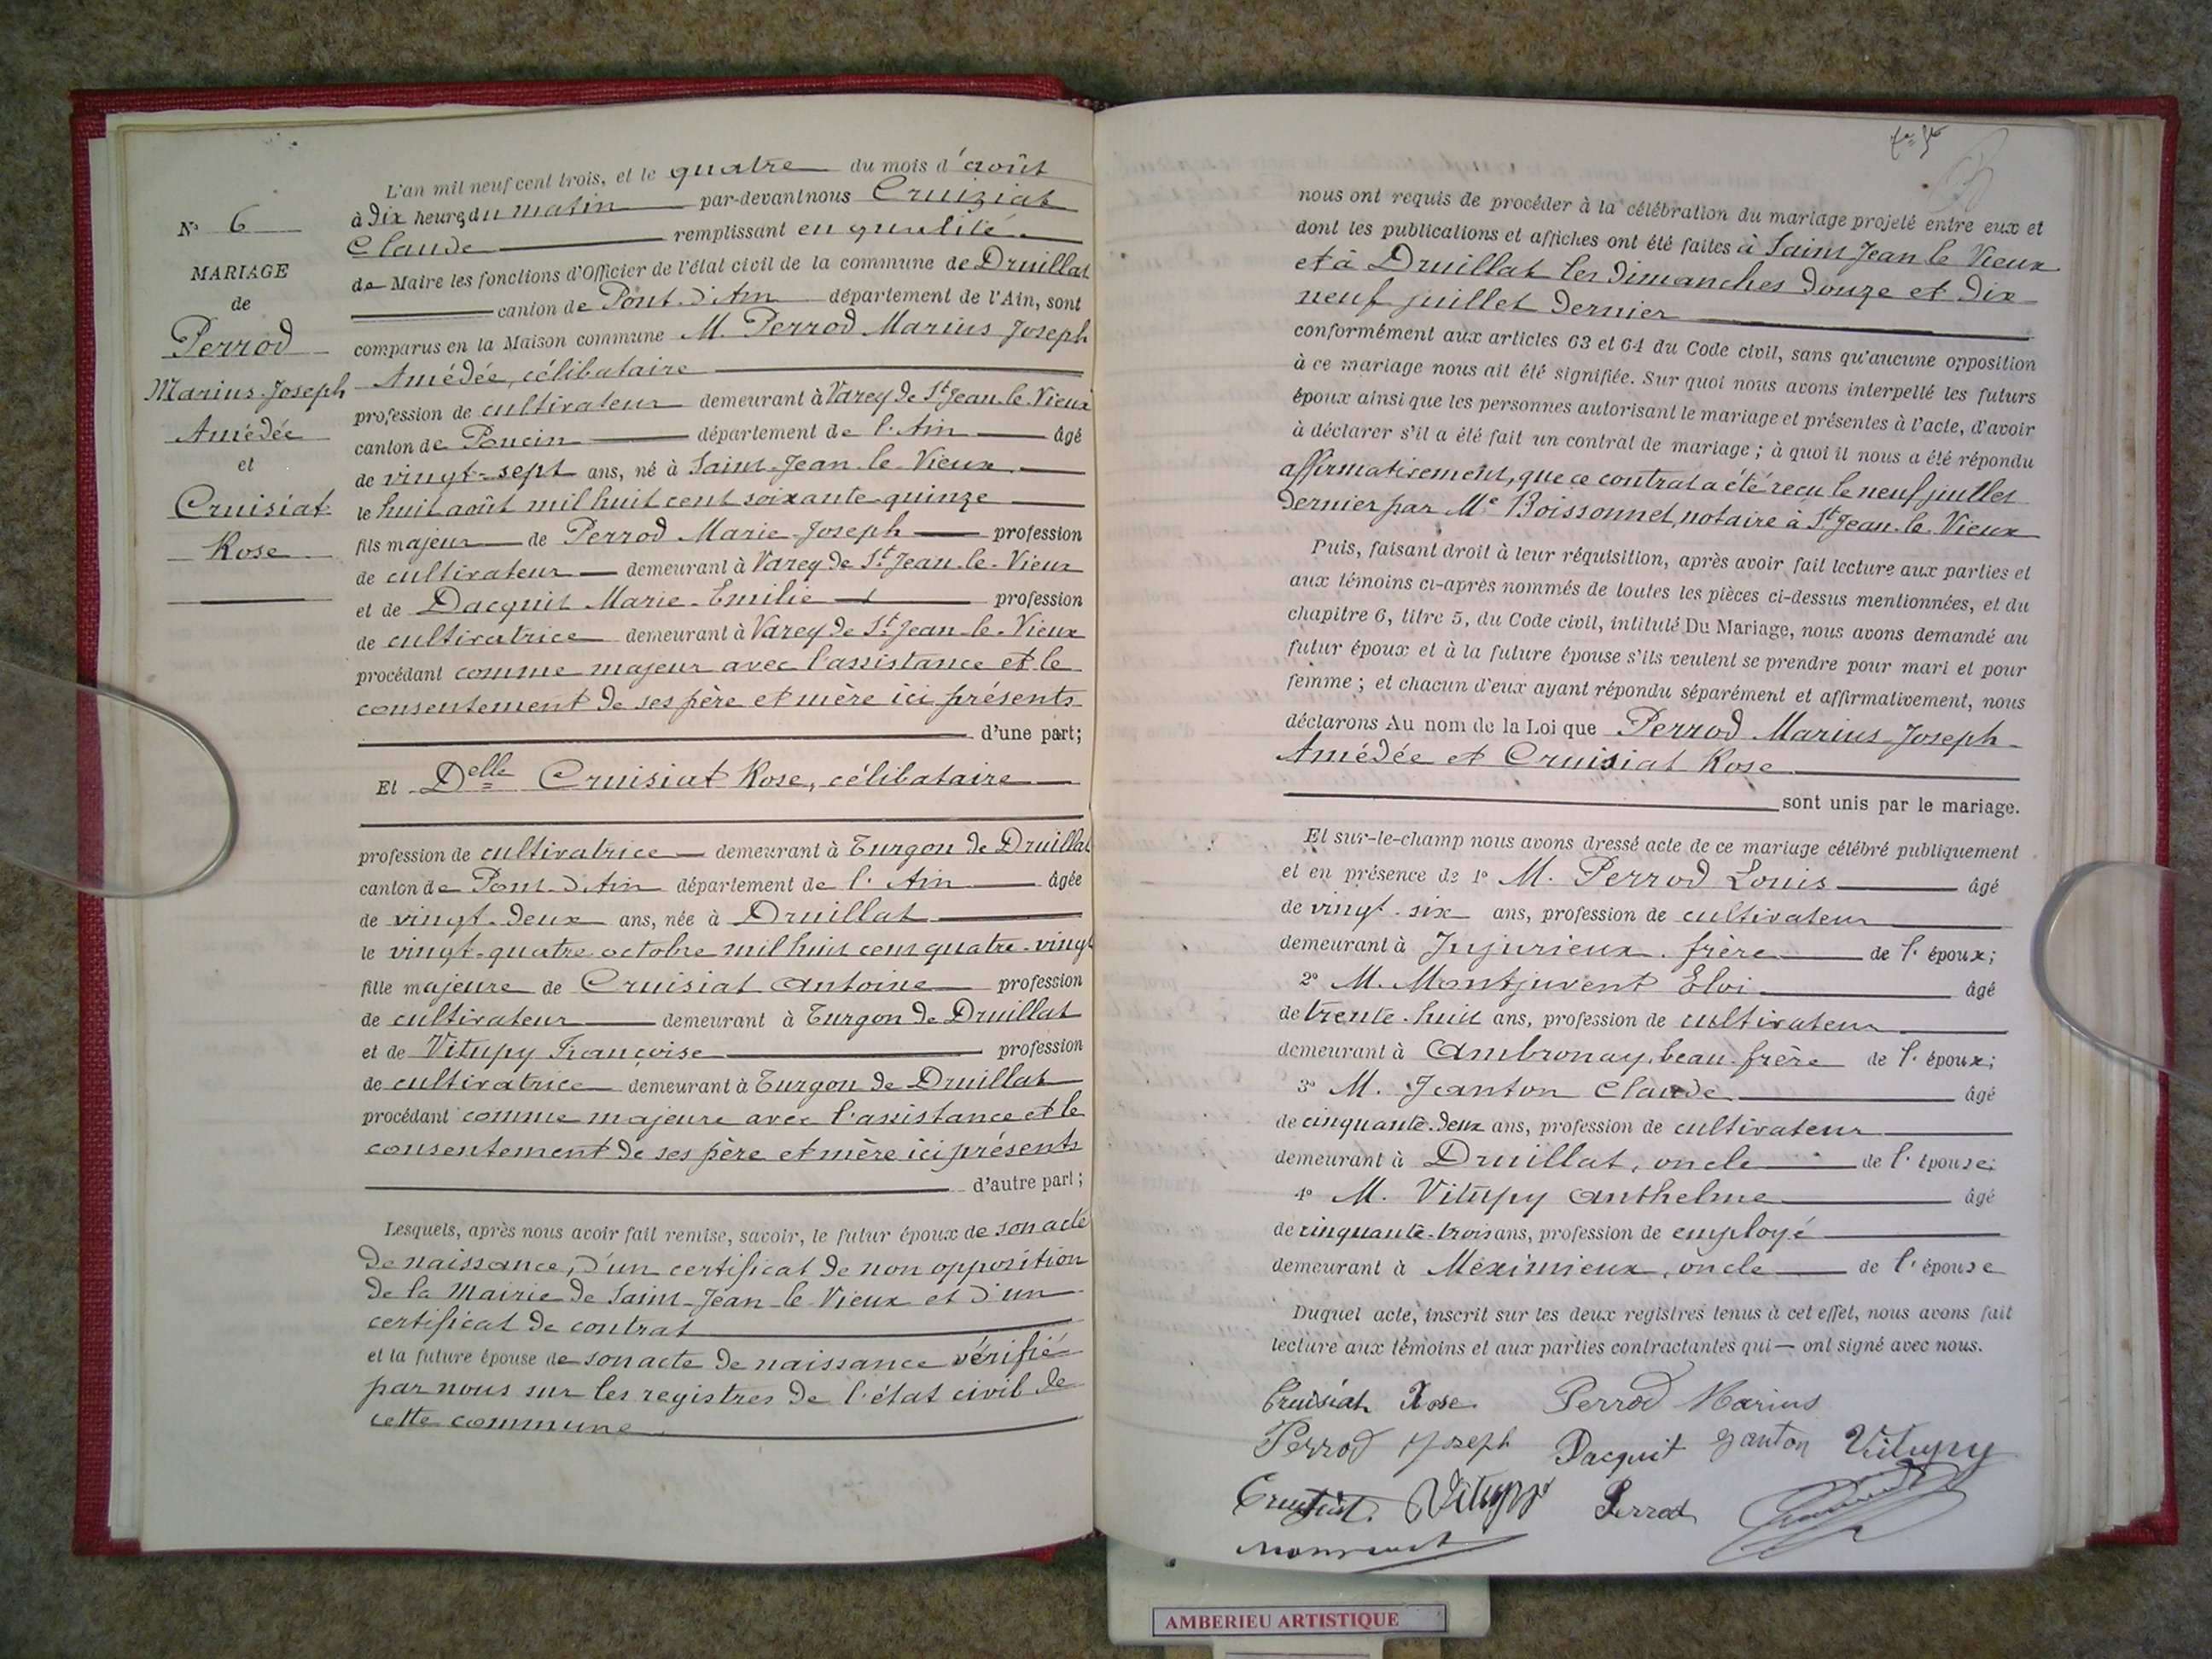 L'an mil neuf cent trois, et le quatre du mois d'août
à Dix heures du matin par-devant nous Cruiziat
Claude remplissant en qualité
de Maire les fonctions d'Officier de l'état civil de la commune de Druillat
canton de Pont-d'Ain département de l'Ain, sont
comparus en la Maison commune M. Perrod Marius Joseph
Amédée, célibataire
profession de cultivateur demeurant à Varey de St Jean-le-Vieux
canton de Poncin département de l'Ain âgé
de vingt-sept ans, né à Saint-Jean-le-Vieux
le huit août mil huit cent soixante-quinze
fils majeur de Perrod Marie Joseph profession
de cultivateur demeurant à Varey de St Jean-le-Vieux
et de Dacquit Marie-Emilie profession
de cultivatrice demeurant à Varey de St Jean-le-Vieux
procédant comme majeur avec l'assistance et le
consentement de ses père et mère ici présents
d'une part;
Et Delle Cruisiat Rose, célibataire
profession de cultivatrice demeurant à Turgon de Druillat
canton de Pont-d'Ain département de l'Ain âgée
de vingt-deux ans, née à Druillat
le vingt-quatre octobre mil huit cent quatre-vingt
fille majeure de Cruisiat Antoine profession
de cultivateur demeurant à Turgon de Druillat
et de Vitupy Françoise profession
de cultivatrice demeurant à Turgon de Druillat
procédant comme majeure avec l'assistance et le
consentement de ses père et mère ici présents
d'autre part;
Lesquels, après nous avoir fait remise, savoir, le futur époux de son acte
de naissance, d'un certificat de non opposition
de la Mairie de Saint-Jean-le-Vieux et d'un
certificat de contrat
et la future épouse de son acte de naissance vérifié
par nous sur les registres de l'état civil de
cette commune
N° 6
MARIAGE
de
Perrod
Marius-Joseph
Amédée
et
Cruisiat
Rose
nous ont requis de procéder à la célébration du mariage projeté entre eux et
dont les publications et affiches ont été faites à Saint Jean le Vieux
et à Druillat les dimanches douze et dix-
neuf juillet dernier
conformément aux articles 63 et 64 du Code civil, sans qu'aucune opposition
à ce mariage nous ait été signifiée. Sur quoi nous avons interpellé les futurs
époux ainsi que les personnes autorisant le mariage et présentes à l'acte, d'avoir
à déclarer s'il a été fait un contrat de mariage; à quoi il nous a été répondu
affirmativement, que ce contrat a été reçu le neuf juillet
dernier par Me Boissonnet, notaire à St Jean-le-Vieux
Puis, faisant droit à leur réquisition, après avoir fait lecture aux parties et
aux témoins ci-après nommés de toutes les pièces ci-dessus mentionnées, et du
chapitre 6, titre 5, du Code civil, intitulé Du Mariage, nous avons demandé au
futur époux et à la future épouse s'ils veulent se prendre pour mari et pour
femme; et chacun d'eux ayant répondu séparément et affirmativement, nous
déclarons Au nom de la Loi que Perrod Marius-Joseph-
Amédée et Cruisiat Rose
sont unis par le mariage.
Et sur-le-champ nous avons dressé acte de ce mariage célébré publiquement
et en présence de 1° M. Perrod Louis âgé
de vingt-six ans, profession de cultivateur
demeurant à Jujurieux, frère de l'époux;
2° M. Montjuvent Eloi âgé
de trente-huit ans, profession de cultivateur
demeurant à Ambronay, beau-frère de l'époux;
3° M. Jeanton Claude âgé
de cinquante-deux ans, profession de cultivateur
demeurant à Druillat, oncle de l'épouse;
4° M. Vitupy Anthelme âgé
de cinquante-trois ans, profession de employé
demeurant à Méximieux, oncle de l'épouse
Duquel acte, inscrit sur les deux registres tenus à cet effet, nous avons fait
lecture aux témoins et aux parties contractantes qui ont signé avec nous.
Cruisiat Rose Perrod Marius
Perrod Joseph Dacquit Janton Vitupy
Vitupy Perrod
AMBERIEU ARTISTIQUE